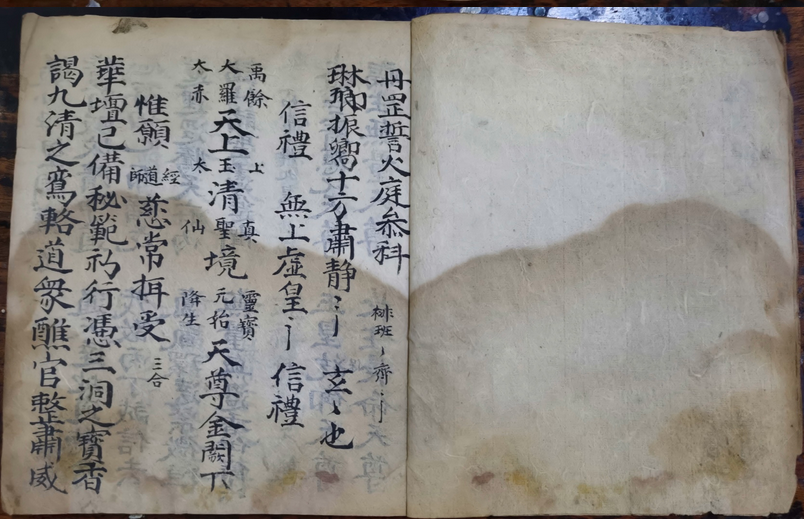 丹罡誓火庭叅科
排班丶齋丶丨
琳琅振响十方肅静丶丨 玄丶也
信禮 無上虛皇丶丨 信禮
禹餘 上 真 靈寶
大羅天上玉清聖境元始天尊金闕下
太赤 太 仙 降生
惟願 經道師慈常拜受 三合
華壇已備秘範礽行憑三洞之寳香
謁九清之鸞輅道衆醮官整肅威